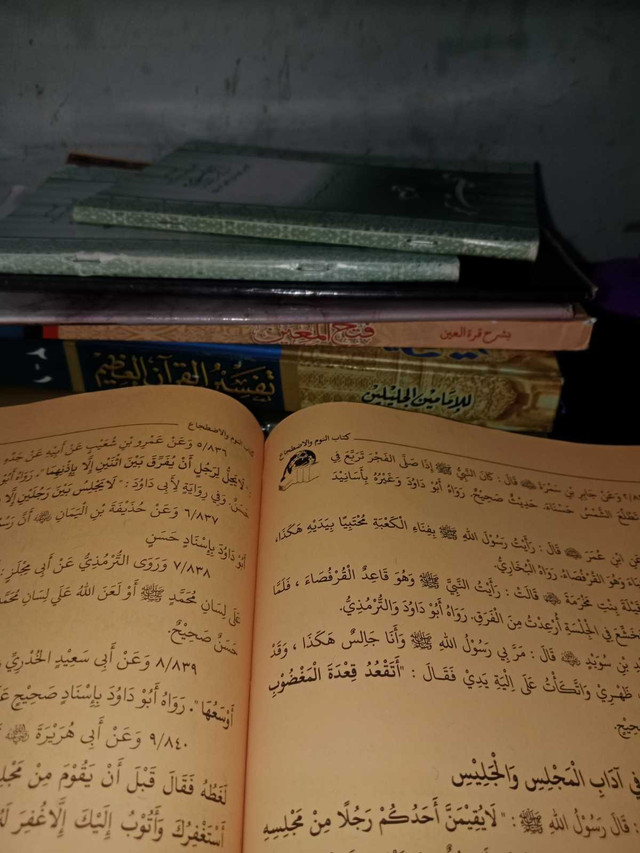 فتح المعين
بشرح قرة العين
تفسير القرآن العظيم
للإمامين الجليلين
٢-١
كتاب النوم والاضطجاع
وَعَنْ جَابِرِ بْنِ سَمُرَةَ ﷺ قَالَ: كَانَ النَّبِيُّ ﷺ إِذَا صَلَّى الْفَجْرَ تَرَبَّعَ فِي
تَطْلُعَ الشَّمْسُ حَسْنَاءَ. حَدِيثٌ صَحِيحٌ. رَوَاهُ أَبُو دَاوُدَ وَغَيْرُهُ بِأَسَانِيدَ
ابْنِ عُمَرَ ﷺ قَالَ: رَأَيْتُ رَسُولَ اللهِ ﷺ بِفِنَاءِ الْكَعْبَةِ مُحْتَبِيًا بِيَدَيْهِ هَكَذَا،
وَهُوَ الْقُرْفُصَاءُ. رَوَاهُ الْبُخَارِيُّ.
بِنْتِ مَخْرَمَةَ ﷺ قَالَتْ: رَأَيْتُ النَّبِيَّ ﷺ وَهُوَ قَاعِدٌ الْقُرْفُصَاءَ، فَلَمَّا
فِي الْجِلْسَةِ أُرْعِدْتُ مِنَ الْفَرَقِ. رَوَاهُ أَبُو دَاوُدَ وَالتِّرْمِذِيُّ.
بْنِ سُوَيْدٍ ﷺ قَالَ: مَرَّ بِي رَسُولُ اللهِ ﷺ وَأَنَا جَالِسٌ هَكَذَا، وَقَدْ
ظَهْرِيْ وَاتَّكَأْتُ عَلَى إِلْيَةِ يَدِيْ فَقَالَ: "أَتَقْعُدُ قِعْدَةَ الْمَغْضُوْبِ
فِي آدَابِ الْمَجْلِسِ وَالْجَلِيْسِ
قَالَ رَسُولُ اللهِ ﷺ: "لَايُقِيْمَنَّ أَحَدُكُمْ رَجُلًا مِنْ مَجْلِسِهِ
كتاب النوم والاضطجاع
٥/٨٣٦ وَعَنْ عَمْرِو بْنِ شُعَيْبٍ عَنْ أَبِيْهِ عَنْ جَدِّهِ
"لَايَحِلُّ لِرَجُلٍ أَنْ يُفَرِّقَ بَيْنَ اثْنَيْنِ إِلَّا بِإِذْنِهِمَا". رَوَاهُ أَبُوْ
حَسَنٌ. وَفِي رِوَايَةٍ لِأَبِي دَاوُدَ: "لَايَجْلِسْ بَيْنَ رَجُلَيْنِ إِلَّا
٦/٨٣٧ وَعَنْ حُذَيْفَةَ بْنِ الْيَمَانِ ﷺ أَنَّ رَسُ
أَبُوْ دَاوُدَ بِإِسْنَادٍ حَسَنٍ
٧/٨٣٨ وَرَوَى التِّرْمِذِيُّ عَنْ أَبِي مِجْلَزٍ
عَلَى لِسَانِ مُحَمَّدٍ ﷺ أَوْ لَعَنَ اللهُ عَلَى لِسَانِ مُحَمَّ
حَسَنٌ صَحِيْحٌ.
٨/٨٣٩ وَعَنْ أَبِي سَعِيْدٍ الْخُدْرِيِّ
أَوْسَعُهَا". رَوَاهُ أَبُوْ دَاوُدَ بِإِسْنَادٍ صَحِيْحٍ عَ
٩/٨٤٠ وَعَنْ أَبِي هُرَيْرَةَ
لَغَطُهُ فَقَالَ قَبْلَ أَنْ يَقُوْمَ مِنْ مَجْلِ
أَسْتَغْفِرُكَ وَأَتُوْبُ إِلَيْكَ إِلَّاغُفِرَ لَهُ